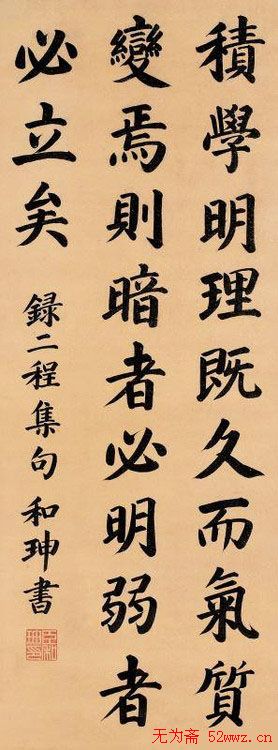 積學明理既久而氣質
變焉則暗者必明弱者
必立矣
録二程集句 和珅書
无为斋 52wwz.cn